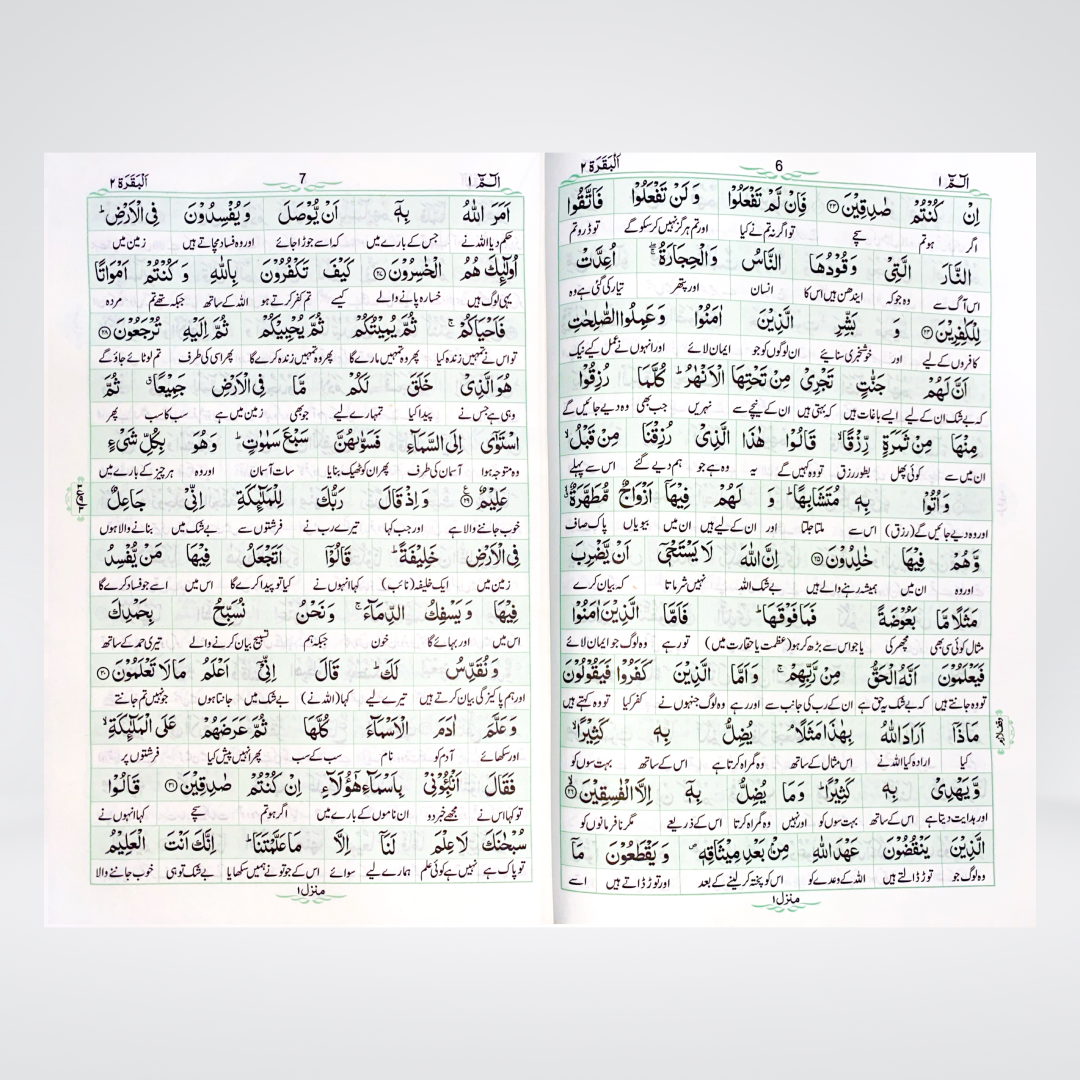 الٓمّٓ ۱
6
اَلْبَقَرَة ۲
اِنْ كُنْتُمْ صٰدِقِيْنَ ﴿۲۳﴾ فَاِنْ لَّمْ تَفْعَلُوْا وَ لَنْ تَفْعَلُوْا فَاتَّقُوا
اگر ہو تم سچے تو اگر نہ تم نے کیا اور تم ہرگز نہیں کر سکو گے تو ڈرو تم
النَّارَ الَّتِيْ وَقُوْدُهَا النَّاسُ وَ الْحِجَارَةُ ۖۚ اُعِدَّتْ
اس آگ سے وہ جو کہ ایندھن ہیں اس کا انسان اور پتھر تیار کی گئی ہے وہ
لِلْكٰفِرِيْنَ ﴿۲۴﴾ وَ بَشِّرِ الَّذِيْنَ اٰمَنُوْا وَ عَمِلُوا الصّٰلِحٰتِ
کافروں کے لیے اور خوشخبری سنایئے ان لوگوں کو جو ایمان لائے اور انہوں نے عمل کیے نیک
اَنَّ لَهُمْ جَنّٰتٍ تَجْرِيْ مِنْ تَحْتِهَا الْاَنْهٰرُ ؕ كُلَّمَا رُزِقُوْا
کہ بے شک ان کے لیے ایسے باغات ہیں کہ بہتی ہیں ان کے نیچے سے نہریں جب بھی وہ دیے جائیں گے
مِنْهَا مِنْ ثَمَرَةٍ رِّزْقًا ۙ قَالُوْا هٰذَا الَّذِيْ رُزِقْنَا مِنْ قَبْلُ ۙ
ان میں سے کوئی پھل بطور رزق تو وہ کہیں گے یہ وہ ہے جو ہم دیے گئے اس سے پہلے
وَ اُتُوْا بِهٖ مُتَشَابِهًا ؕ وَ لَهُمْ فِيْهَاۤ اَزْوَاجٌ مُّطَهَّرَةٌ ۙ
اور وہ دیے جائیں گے (رزق) اس سے ملتا جلتا اور ان کے لیے ہیں ان میں بیویاں پاک صاف
وَّ هُمْ فِيْهَا خٰلِدُوْنَ ﴿۲۵﴾ اِنَّ اللّٰهَ لَا يَسْتَحْيٖۤ اَنْ يَّضْرِبَ
اور وہ ان میں ہمیشہ رہنے والے ہیں بے شک اللہ نہیں شرماتا کہ بیان کرے
مَثَلًا مَّا بَعُوْضَةً فَمَا فَوْقَهَا ؕ فَاَمَّا الَّذِيْنَ اٰمَنُوْا
مثال کوئی سی بھی مچھر کی یا جو اس سے بڑھ کر ہو (عظمت یا حقارت میں) تو رہے وہ لوگ جو ایمان لائے
فَيَعْلَمُوْنَ اَنَّهُ الْحَقُّ مِنْ رَّبِّهِمْ ۚ وَ اَمَّا الَّذِيْنَ كَفَرُوْا فَيَقُوْلُوْنَ
تو وہ جانتے ہیں کہ بے شک یہ حق ہے ان کے رب کی جانب سے اور رہے وہ لوگ جنہوں نے کفر کیا تو وہ کہتے ہیں
مَاذَاۤ اَرَادَ اللّٰهُ بِهٰذَا مَثَلًا ۘ يُضِلُّ بِهٖ كَثِيْرًا ۙ
کیا ارادہ کیا اللہ نے اس مثال کے ساتھ وہ گمراہ کرتا ہے اس کے ساتھ بہت سوں کو
وَّ يَهْدِيْ بِهٖ كَثِيْرًا ؕ وَ مَا يُضِلُّ بِهٖۤ اِلَّا الْفٰسِقِيْنَ ﴿۲۶﴾ ۙ
اور ہدایت دیتا ہے اس کے ساتھ بہت سوں کو اور نہیں وہ گمراہ کرتا اس کے ذریعے مگر نافرمانوں کو
الَّذِيْنَ يَنْقُضُوْنَ عَهْدَ اللّٰهِ مِنْ بَعْدِ مِيْثَاقِهٖ ۪ وَ يَقْطَعُوْنَ مَاۤ
وہ لوگ جو توڑ ڈالتے ہیں اللہ کے وعدے کو اس کو پختہ کر لینے کے بعد اور توڑ ڈالتے ہیں اسے
منزل ۱
الٓمّٓ ۱
7
اَلْبَقَرَة ۲
اَمَرَ اللّٰهُ بِهٖۤ اَنْ يُّوْصَلَ وَ يُفْسِدُوْنَ فِي الْاَرْضِ ؕ
حکم دیا اللہ نے جس کے بارے میں کہ اسے جوڑا جائے اور وہ فساد مچاتے ہیں زمین میں
اُولٰٓئِكَ هُمُ الْخٰسِرُوْنَ ﴿۲۷﴾ كَيْفَ تَكْفُرُوْنَ بِاللّٰهِ وَ كُنْتُمْ اَمْوَاتًا
یہی لوگ ہیں خسارہ پانے والے کیسے تم کفر کرتے ہو اللہ کے ساتھ جبکہ تھے تم مردہ
فَاَحْيَاكُمْ ۚ ثُمَّ يُمِيْتُكُمْ ثُمَّ يُحْيِيْكُمْ ثُمَّ اِلَيْهِ تُرْجَعُوْنَ ﴿۲۸﴾
تو اس نے تمہیں زندہ کیا پھر وہ تمہیں مارے گا پھر وہ تمہیں زندہ کرے گا پھر اسی کی طرف تم لوٹائے جاؤ گے
هُوَ الَّذِيْ خَلَقَ لَكُمْ مَّا فِي الْاَرْضِ جَمِيْعًا ۗ ثُمَّ
وہی ہے جس نے پیدا کیا تمہارے لیے جو بھی زمین میں ہے سب کا سب پھر
اسْتَوٰۤى اِلَى السَّمَآءِ فَسَوّٰىهُنَّ سَبْعَ سَمٰوٰتٍ ؕ وَ هُوَ بِكُلِّ شَيْءٍ
وہ متوجہ ہوا آسمان کی طرف پھر ان کو ٹھیک بنایا سات آسمان اور وہ ہر چیز کے بارے میں
عَلِيْمٌ ﴿۲۹﴾ وَ اِذْ قَالَ رَبُّكَ لِلْمَلٰٓئِكَةِ اِنِّيْ جَاعِلٌ
خوب جاننے والا ہے اور جب کہا تیرے رب نے فرشتوں سے بے شک میں بنانے والا ہوں
فِي الْاَرْضِ خَلِيْفَةً ؕ قَالُوْۤا اَتَجْعَلُ فِيْهَا مَنْ يُّفْسِدُ
زمین میں ایک خلیفہ (نائب) کہا انہوں نے کیا تو پیدا کرے گا اس میں اسے جو فساد کرے گا
فِيْهَا وَ يَسْفِكُ الدِّمَآءَ ۚ وَ نَحْنُ نُسَبِّحُ بِحَمْدِكَ
اس میں اور بہائے گا خون جبکہ ہم تسبیح بیان کرنے والے تیری حمد کے ساتھ
وَ نُقَدِّسُ لَكَ ؕ قَالَ اِنِّيْۤ اَعْلَمُ مَا لَا تَعْلَمُوْنَ ﴿۳۰﴾
اور ہم پاکیزگی بیان کرتے ہیں تیرے لیے کہا (اللہ نے) بے شک میں جانتا ہوں جو نہیں تم جانتے
وَ عَلَّمَ اٰدَمَ الْاَسْمَآءَ كُلَّهَا ثُمَّ عَرَضَهُمْ عَلَى الْمَلٰٓئِكَةِ ۙ
اور سکھائے آدم کو نام سب کے سب پھر انہیں پیش کیا فرشتوں پر
فَقَالَ اَنْۢبِـُٔوْنِيْ بِاَسْمَآءِ هٰۤؤُلَآءِ اِنْ كُنْتُمْ صٰدِقِيْنَ ﴿۳۱﴾ قَالُوْا
تو کہا اس نے مجھے خبر دو ان ناموں کے بارے میں اگر ہو تم سچے کہا انہوں نے
سُبْحٰنَكَ لَا عِلْمَ لَنَاۤ اِلَّا مَا عَلَّمْتَنَا ؕ اِنَّكَ اَنْتَ الْعَلِيْمُ
تو پاک ہے نہیں ہے کوئی علم ہمارے لیے سوائے اس کے جو تو نے ہمیں سکھایا بے شک تو ہی خوب جاننے والا
منزل ۱